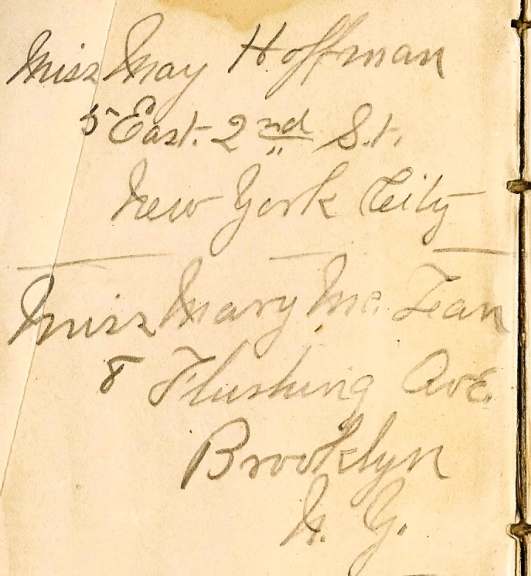 Miss May Hoffman
5 East. 2nd St.
New York City
Miss Mary Mc. Lean
8 Flushing Ave.
Brooklyn
N. Y.